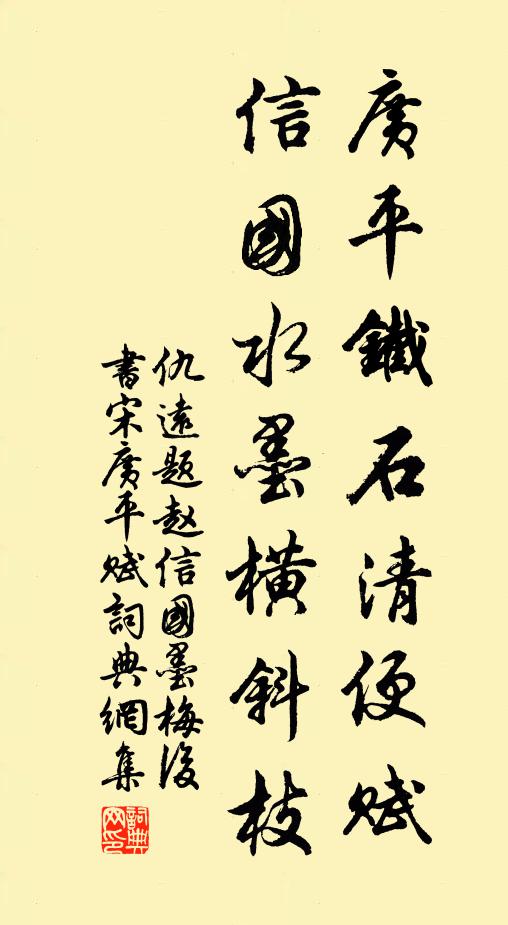 廣平鐵石清便賦
信國水墨橫斜枝
仇遠題趙信國墨梅後
書宋廣平賦詞典網集
詞典
网印